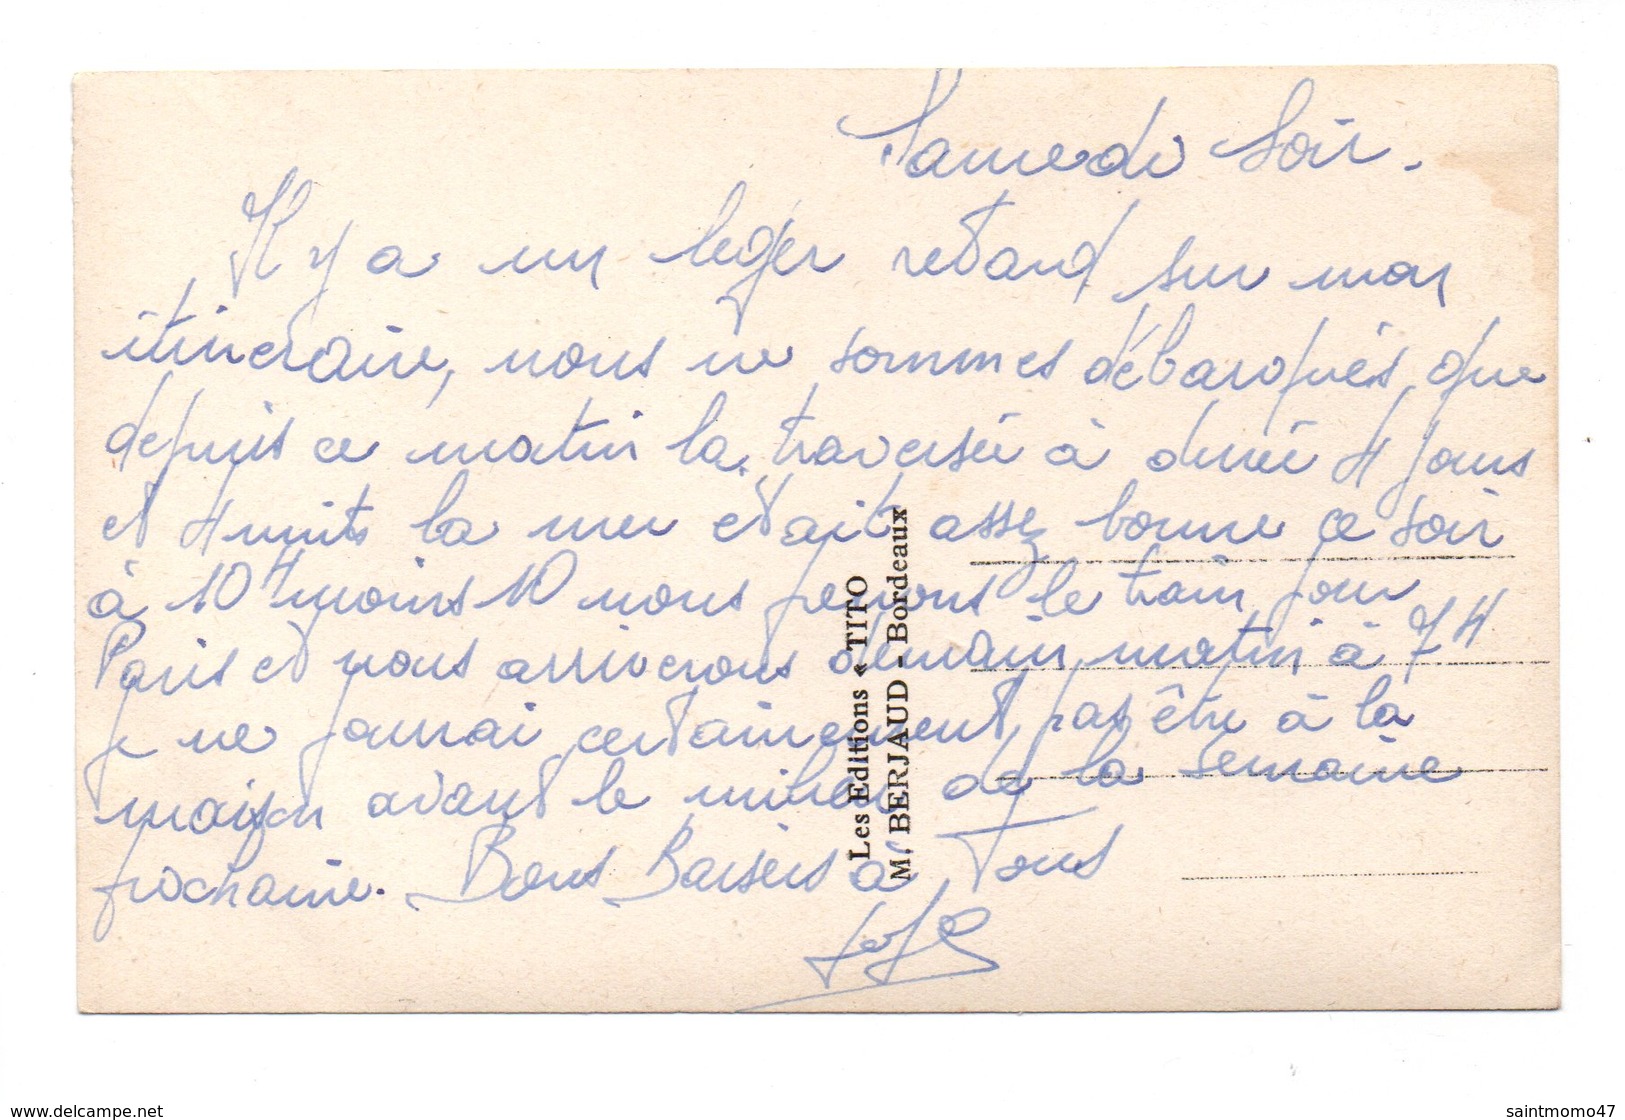 Samedi Soir.
Il y a un leger retard sur mon
itineraire, nous ne sommes débarqués que
depuis ce matin la traversée à durée 4 jours
et 4 nuits la mer etait assez bonne ce soir
à 10H moins 10 nous prenons le train pour
Paris et nous arriverons demain matin à 7H
je ne pourrai certainement pas être à la
maison avant le milieu de la semaine
prochaine. Bons Baisers à Tous
Les Editions « TITO
M. BERJAUD - Bordeaux
delcampe.net
saintmomo47